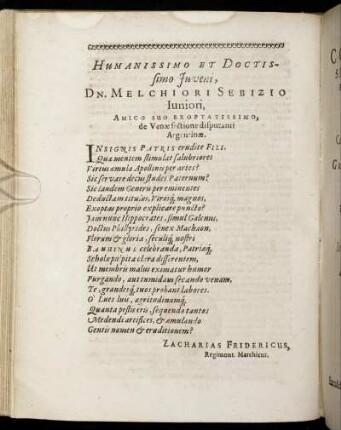 HUMANISSIMO ET DOCTIS-
simo Juveni,
DN. MELCHIORI SEBIZIO
Iuniori,
AMICO SUO EXOPTATISSIMO,
de Venæ sectione disputanti
Argentinæ.
INSIGNIS PATRIS erudite FILI.
Qua mentem stimulat salubriores
Virtus æmula Apollinis per artes?
Sic servare decus studes Paternum?
Sic tandem Generis pereminentes
Deducta institutas, Virosq́; magnos,
Exoptas proprio explicare puncto?
Jam nunc Hippocrates, simul Galenus,
Doctus Phillyrides, senex Machaon,
Florens & gloria, seculiq́; nostri
BAUHINUS celebranda, Patriæq́;
Schola suspitat clara disserentem,
Ut membris malus eximatur humor
Purgando, aut tumidam secando venam.
Te, grandesq́; tuos probant labores.
O' Lues luis, ægritudinumq́;
Quanta pestis eris, sequendo tantos
Medendi artifices, & æmulando
Gentis nomen & eruditionem?
ZACHARIAS FRIDERICUS,
Regimont. Marchicus.